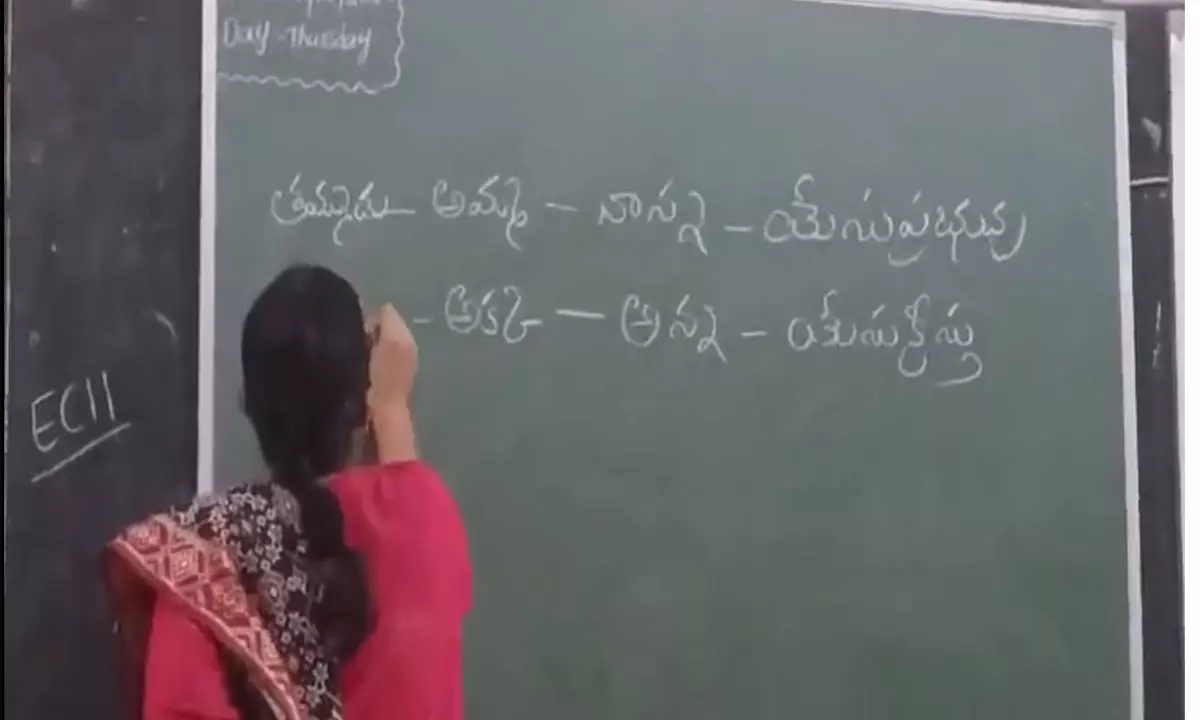 Day - Thursday
తమ్ముడు - అమ్మ - నాన్న - యేసుప్రభువు
- అక్క - అన్న - యేసుక్రీస్తు
EC11